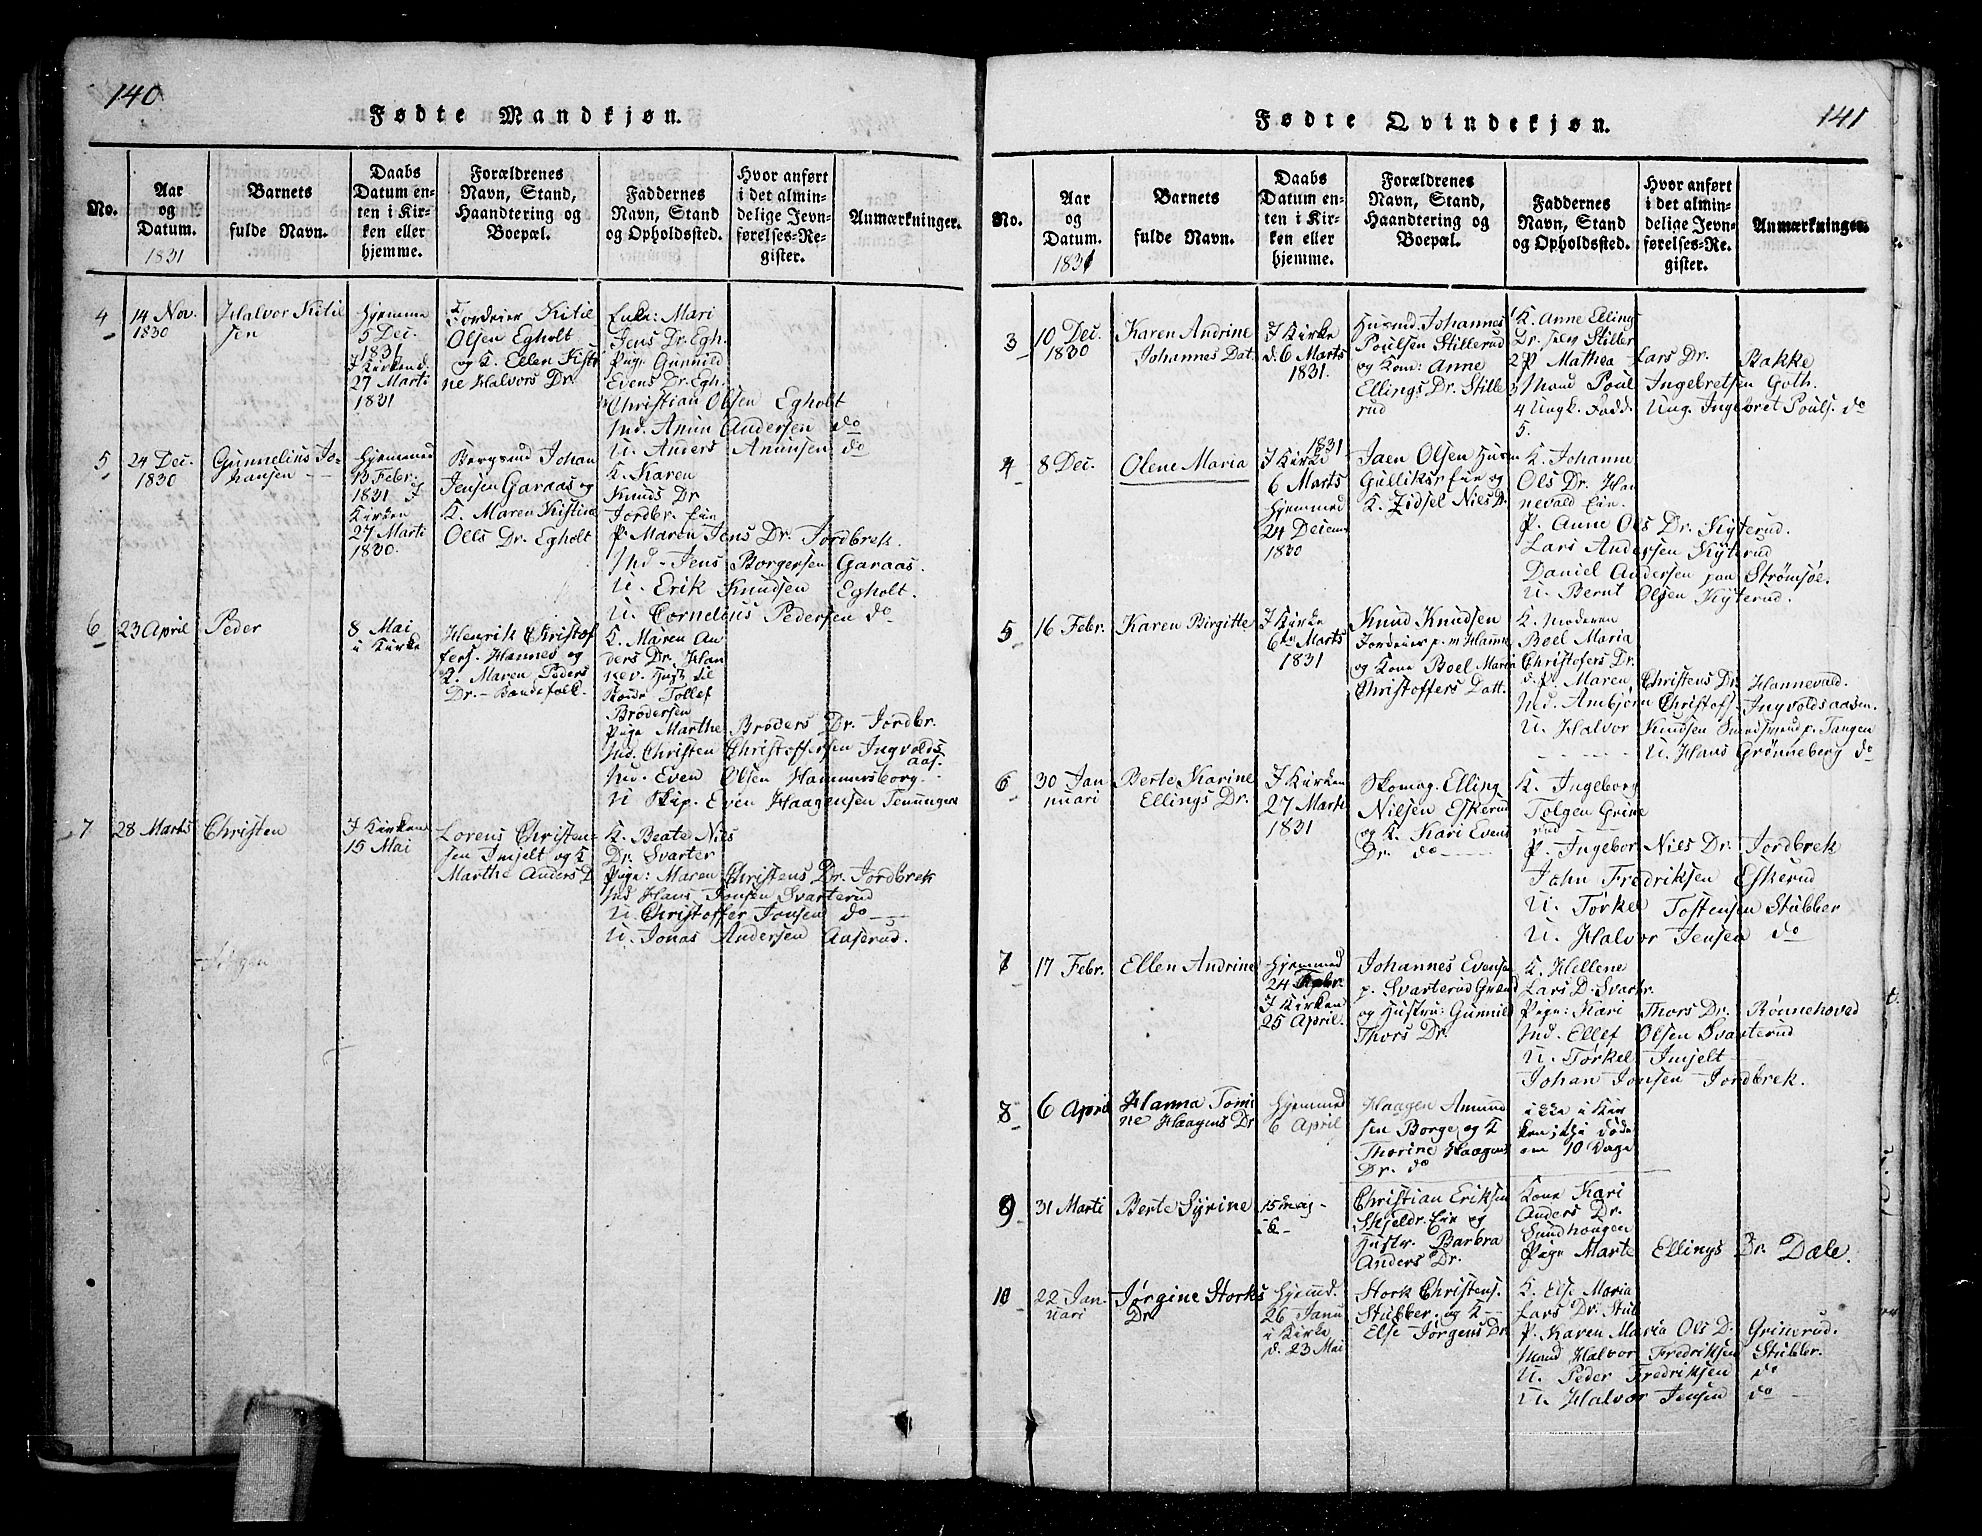 140
Fødte Mandkjøn.
No.
Aar
og
Datum.
1831
Barnets
fulde Navn.
Daabs
Datum en-
ten i Kir-
ken eller
hjemme.
Forældrenes
Navn, Stand,
Haandtering og
Boepæl.
Faddernes
Navn, Stand
og Opholdssted.
Hvor anført
i det almin-
delige Jevn-
førelses-Re-
gister.
Anmærkninger.
4
14 Nov.
1830
Halvor Kitil
sen
Hjemme
5 Dec.
1831
I Kirken d.
27 Marti
1831
Jordeier Kitil
Olsen Egholt
og K. Ellen Kisti
ne Halvors Dr
Enke: Mari
Jens Dr. Egh.
Pige Gunnild
Evens Dr. Egh.
Christian Olsen Egholt
Md. Amun Andersen do
U. Anders Amunsen do
5
24 Dec.
1830
Gunnelius Jo-
hansen
Hjemmed
13 Febr.
1831 I
Kirken
27 Marti
1830.
Bergmd Johan
Jensen Garaas og
K. Maren Kistine
Olls Dr. Egholt
K. Karen
Knuds Dr
Jordbr. Eie
P. Maren Jens Dr. Jordbrek.
Md. Jens Borgersen Garaas.
U. Erik Knudsen Egholt.
U. Cornelius Pedersen do
6
23 April
Peder
8 Mai
i Kirke
Henrik Christof
fers. Hannes og
K. Maren Peders
Dr. - Bondefolk
K. Maren An
ders Dr. Han
nev. Hust til
Tollef
Brodersen
Pige Marthe Broders Dr. Jordbr.
Md. Christen Christoffersen Ingvolds
aas.
Md. Even Olsen Hammersborg
U Skip. Even Haagensen
7
28 Marts
Christen
I Kirken
15 Mai
Lorens Christen-
sen Imjelt og K
Marthe Anders D
K. Beate Nils
Dr. Svarter
Pige: Maren Christens Dr. Jordbrek
Md Hans Jonsen Svarterud
U. Christoffer Jonsen do
U. Jonas Andersen Anserud.
141
Fødte Qvindekjøn.
No.
Aar
og
Datum.
1831
Barnets
fulde Navn.
Daabs
Datum en-
ten i Kir-
ken eller
hjemme.
Forældrenes
Navn, Stand,
Haandtering og
Boepæl.
Faddernes
Navn, Stand
og Opholdsted.
Hvor anført
i det almin-
delige Jevn-
førelses-Re-
gister.
Anmærkninger.
3
10 Dec.
1830
Karen Andrine
Johannes Dat.
I Kirke
d. 6 Marts
1831.
Husmd. Johannes
Poulsen Stillerud
og Kone: Anne
Ellings Dr. Stille
rud
1 K. Anne Elling
Dr. Stiller
2 P. Mathea Lars Dr. Bakke
3 Mand Poul Ingebretsen Goth.
4 Ungk. Fadd. Ung. Ingebret Pouls. do
5.
4
8 Dec.
Olene Maria
1831
I Kirke
6 Marts
Hjemmed
24 Decem
1830
Jaen Olsen Husm
Gulliksr Eie og
K. Zidsel Niels Dr
K. Johanne
Ols Dr. Han
nevald Eie.
P. Anne Ols Dr. Kyterud.
Lars Andersen Kyterud
Daniel Andersen paa Strømsøe.
U. Bernt Olsen Kyterud.
5
16 Febr.
Karen Birgitte
I Kirke
6te Marts
1831
Knud Knudsen
Jordeier p. m Hanne
og Kone Boel Maria
Christoffers Datt.
K. Moderen
Boel Maria
Christofers Dr.
d. P. Maren Christens Dr. Hannevald.
Md. Ambjørn Christofs. Ingvoldsaasen.
U. Halvor Knudsen p. Tangen
U. Hans Grønneberg do
6
30 Jan
nuari
Berte Karine
Ellings Dr.
I Kirken
27 Marti
1831
Skomag. Elling
Nilsen Eskerud
og K. Kari Evens
Dr. do
K. Ingeborg
Tolgen Grine
rud
P. Ingebor Niels Dr. Jordbrek
John Fredriksen Eskerud
U. Torkel Tostensen Stubber
U. Halvor Jensen do
7
17 Febr.
Ellen Andrine
Hjemmed
24 Febr.
I Kirken
25 April.
Johannes Evensen
p. Svarterud Grund
og Hustru: Gunnild
Thors Dr.
K. Hellene
Lars D. Svartr.
Pige: Kari Thors Dr. Rønnehoved
Md. Ellef Olsen Svarterud
U. Torkel Imjelt
Johan Jonsen Jordbrek.
8
6 April
Hanna Tomi
ne Haagens Dr
Hjemmed
6 April
Haagen Amund
sen Borge og K
Thorine Haagens
Dr. do
ikke i Kir
ken; thi døde
om 10 Dage
9
31 Marti
Berte Syrine
15 maj
Christian Eriksen
Skjeldr. Eie og
Hustr. Barbra
Anders Dr.
Kone Kari
Anders Dr.
Sundhougen
Pige Marte Ellings Dr. Dæle.
10
22 Jan
uari
Jørgine Storks
Dr
Hjemd.
26 Janu
i Kirke
d. 23 Mai
Stork Christens.
Stubber, og K
Else Jørgens Dr
K. Else Maria
Lars Dr. Stub
P. Karen Maria Ols D. Grinerud.
Mand Halvor Fredriksen Stubbr.
U. Peder Fredriksen do
U. Halvor Jensen do